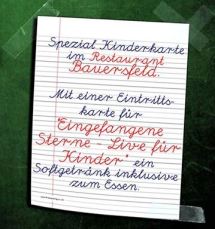 Spezial Kinderkarte
im Restaurant
Bauersfeld.
Mit einer Eintritts-
karte für
"Eingefangene
Sterne - Live für
Kinder" ein
Softgetränk inklusive
zum Essen.